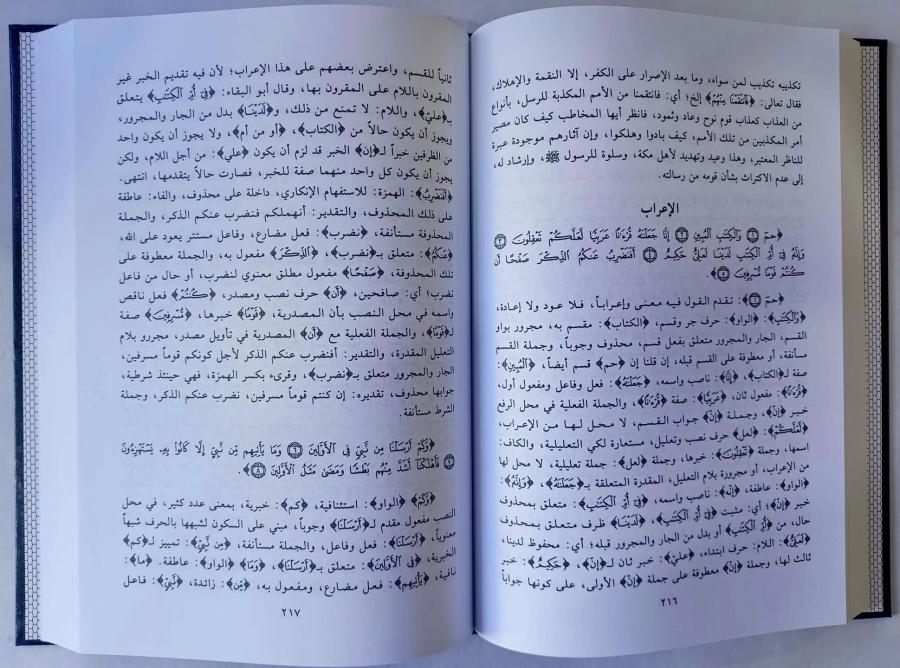 تكذيبه تكذيب لمن سواه، وما بعد الإصرار على الكفر، إلا النقمة والإهلاك،
فقال تعالى: ﴿فَانْتَقَمْنَا مِنْهُمْ﴾ إلخ؛ أي: فانتقمنا من الأمم المكذبة للرسل، بأنواع
من العذاب كعذاب قوم نوح وعاد وثمود، فانظر أيها المخاطب كيف كان مصير
أمر المكذبين من تلك الأمم، كيف بادوا وهلكوا، وإن آثارهم موجودة عبرة
للناظر المعتبر، وهذا وعيد وتهديد لأهل مكة، وسلوة للرسول ﷺ، وإرشاد له،
إلى عدم الاكتراث بشأن قومه من رسالته.
الإعراب
﴿حمٓ ۝١ وَالْكِتَابِ الْمُبِينِ ۝٢ إِنَّا جَعَلْنَاهُ قُرْءَانًا عَرَبِيًّا لَعَلَّكُمْ تَعْقِلُونَ ۝٣
وَإِنَّهُ فِي أُمِّ الْكِتَابِ لَدَيْنَا لَعَلِيٌّ حَكِيمٌ ۝٤ أَفَنَضْرِبُ عَنْكُمُ الذِّكْرَ صَفْحًا أَنْ
كُنْتُمْ قَوْمًا مُسْرِفِينَ ۝٥﴾.
﴿حمٓ ۝١﴾: تقدم القول فيه معنى وإعراباً، فلا عود ولا إعادة،
﴿وَالْكِتَابِ﴾: ﴿الواو﴾: حرف جر وقسم، ﴿الكتاب﴾: مقسم به، مجرور بواو
القسم، الجار والمجرور متعلق بفعل قسم، محذوف وجوباً، وجملة القسم
مستأنفة، أو معطوفة على القسم قبله، إن قلنا إن ﴿حم﴾ قسم أيضاً، ﴿الْمُبِينِ﴾:
صفة لـ﴿الكتاب﴾، ﴿إِنَّا﴾: ناصب واسمه، ﴿جَعَلْنَاهُ﴾: فعل وفاعل ومفعول أول،
﴿قُرْءَانًا﴾: مفعول ثان، ﴿عَرَبِيًّا﴾: صفة ﴿قُرْءَانًا﴾، والجملة الفعلية في محل الرفع
خبر ﴿إِنَّ﴾، وجملة ﴿إِنَّ﴾ جواب القسم، لا محل لها من الإعراب،
﴿لَعَلَّكُمْ﴾: ﴿لعل﴾ حرف نصب وتعليل، مستعارة لكي التعليلية، والكاف:
اسمها، وجملة ﴿تَعْقِلُونَ﴾: خبرها، وجملة ﴿لعل﴾: جملة تعليلية، لا محل لها
من الإعراب، أو مجرورة بلام التعليل، المقدرة المتعلقة بـ﴿جَعَلْنَاهُ﴾، ﴿وَإِنَّهُ﴾:
﴿الواو﴾: عاطفة، ﴿إِنَّهُ﴾: ناصب واسمه، ﴿فِي أُمِّ الْكِتَابِ﴾: متعلق بمحذوف
خبر ﴿إِنَّ﴾؛ أي: مثبت ﴿فِي أُمِّ الْكِتَابِ﴾، ﴿لَدَيْنَا﴾ ظرف متعلق بمحذوف
حال، من ﴿أُمِّ الْكِتَابِ﴾ أو بدل من الجار والمجرور قبله؛ أي: محفوظ لدينا،
﴿لَعَلِيٌّ﴾: اللام: حرف ابتداء، ﴿علي﴾: خبر ثان لـ﴿إِنَّ﴾، ﴿حَكِيمٌ﴾: خبر
ثالث لها، وجملة ﴿إِنَّ﴾ معطوفة على جملة ﴿إِنَّ﴾ الأولى، على كونها جواباً
٢١٦
ثانياً للقسم، واعترض بعضهم على هذا الإعراب؛ لأن فيه تقديم الخبر غير
المقرون باللام على المقرون بها، وقال أبو البقاء: ﴿فِي أُمِّ الْكِتَابِ﴾ يتعلق
بـ﴿علي﴾، واللام: لا تمنع من ذلك، و﴿لَدَيْنَا﴾ بدل من الجار والمجرور،
ويجوز أن يكون حالاً من ﴿الكتاب﴾، ﴿أو من أم﴾، ولا يجوز أن يكون واحد
من الظرفين خبراً لـ﴿إن﴾ الخبر قد لزم أن يكون ﴿علي﴾: من أجل اللام، ولكن
يجوز أن يكون كل واحد منهما صفة للخبر، فصارت حالاً يتقدمها، انتهى.
﴿أَفَنَضْرِبُ﴾: الهمزة: للاستفهام الإنكاري، داخلة على محذوف، والفاء: عاطفة
على ذلك المحذوف، والتقدير: أنهملكم فنضرب عنكم الذكر، والجملة
المحذوفة مستأنفة، ﴿نضرب﴾: فعل مضارع، وفاعل مستتر يعود على الله،
﴿عَنْكُمُ﴾: متعلق بـ﴿نضرب﴾، ﴿الذِّكْرَ﴾ مفعول به، والجملة معطوفة على
تلك المحذوفة، ﴿صَفْحًا﴾ مفعول مطلق معنوي لنضرب، أو حال من فاعل
نضرب؛ أي: صافحين، ﴿أَن﴾ حرف نصب ومصدر، ﴿كُنْتُمْ﴾ فعل ناقص
واسمه في محل النصب بأن المصدرية، ﴿قَوْمًا﴾ خبرها، ﴿مُسْرِفِينَ﴾ صفة
لـ﴿قَوْمًا﴾، والجملة الفعلية مع ﴿أَن﴾ المصدرية في تأويل مصدر، مجرور بلام
التعليل المقدرة، والتقدير: أفنضرب عنكم الذكر لأجل كونكم قوماً مسرفين،
الجار والمجرور متعلق بـ﴿نضرب﴾، وقرىء بكسر الهمزة، فهي حينئذ شرطية،
جوابها محذوف، تقديره: إن كنتم قوماً مسرفين، نضرب عنكم الذكر، وجملة
الشرط مستأنفة.
﴿وَكَمْ أَرْسَلْنَا مِنْ نَبِيٍّ فِي الْأَوَّلِينَ ۝٦ وَمَا يَأْتِيهِمْ مِنْ نَبِيٍّ إِلَّا كَانُوا بِهِ يَسْتَهْزِءُونَ
۝٧ فَأَهْلَكْنَا أَشَدَّ مِنْهُمْ بَطْشًا وَمَضَى مَثَلُ الْأَوَّلِينَ ۝٨﴾.
﴿وَكَمْ﴾ ﴿الواو﴾: استئنافية، ﴿كم﴾: خبرية، بمعنى عدد كثير، في محل
النصب مفعول مقدم لـ﴿أَرْسَلْنَا﴾ وجوباً، مبني على السكون لشبهها بالحرف شبهاً
معنوياً، ﴿أَرْسَلْنَا﴾: فعل وفاعل، والجملة مستأنفة، ﴿مِنْ نَبِيٍّ﴾: تمييز لـ﴿كم﴾
الخبرية، ﴿فِي الْأَوَّلِينَ﴾: متعلق بـ﴿أَرْسَلْنَا﴾، ﴿وَمَا﴾ ﴿الواو﴾: عاطفة. ﴿ما﴾:
نافية، ﴿يَأْتِيهِمْ﴾: فعل مضارع، ومفعول به، ﴿مِنْ﴾: زائدة، ﴿نَبِيٍّ﴾: فاعل
٢١٧